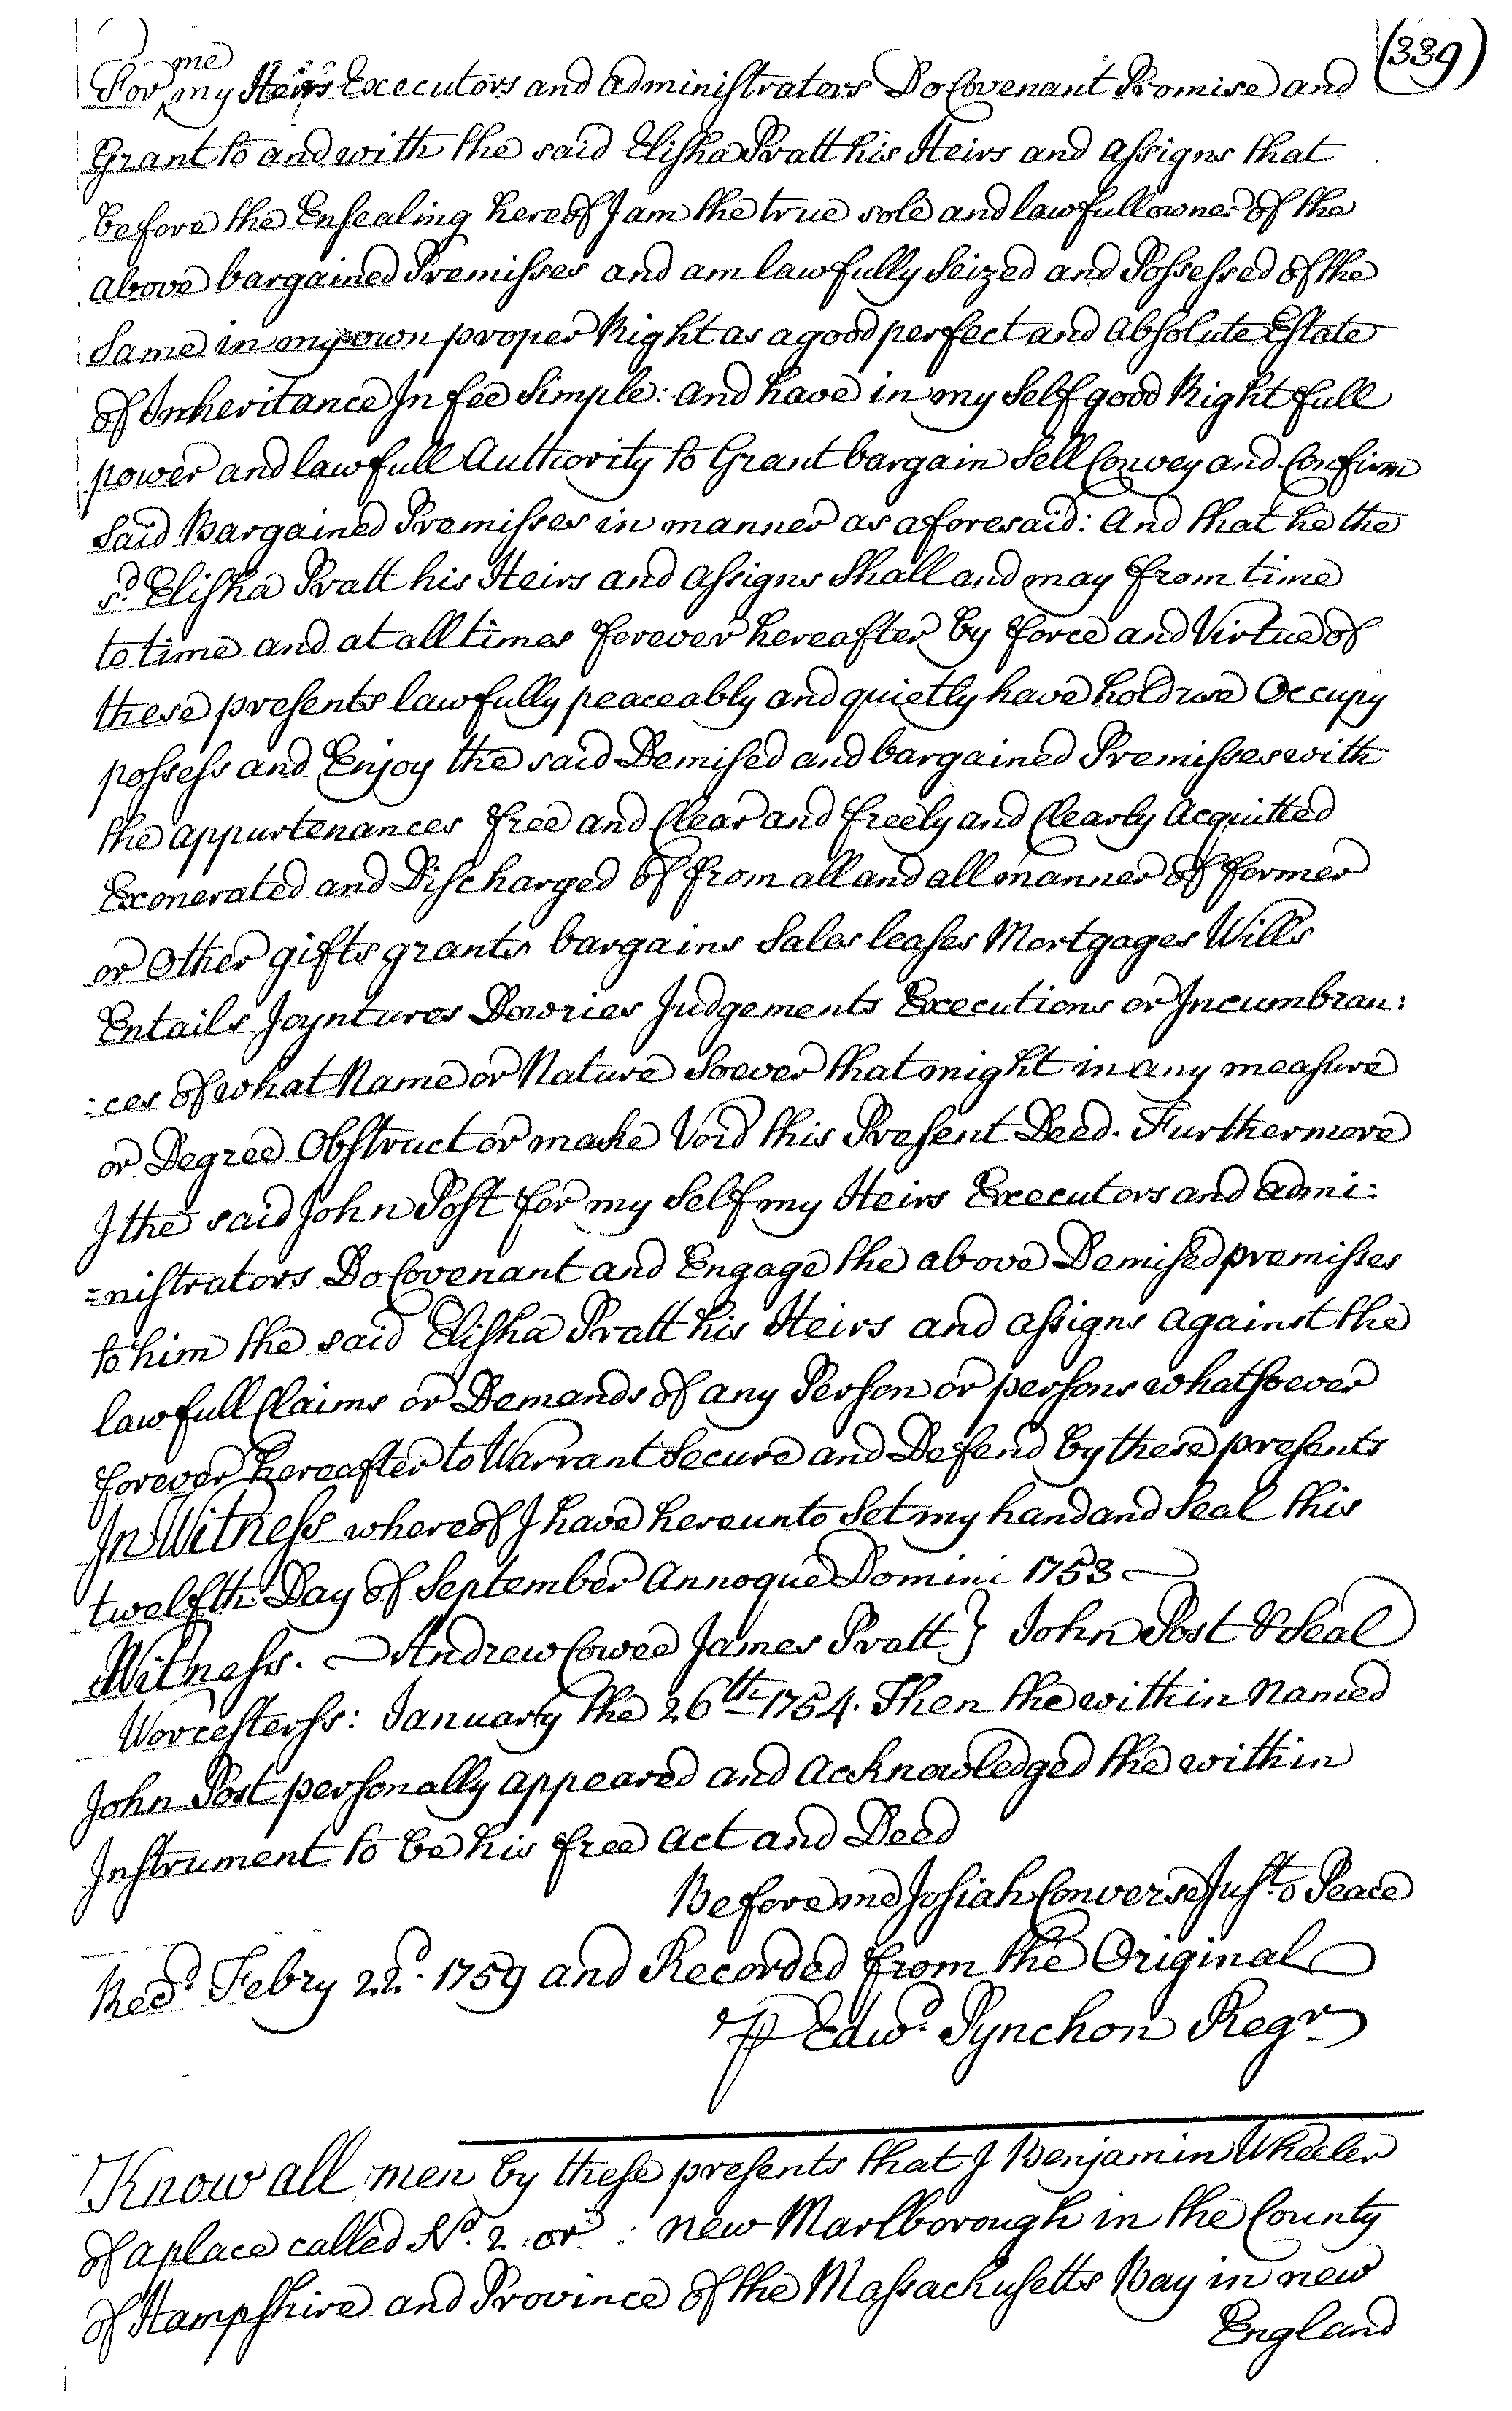 (339)
me
For my Heirs Executors and administrators Do Covenant Promise and
Grant to and with the said Elisha Pratt his Heirs and assigns that
before the Ensealing hereof I am the true sole and lawfull owner of the
above bargained Premisses and am lawfully Seized and Possessed of the
Same in my own proper Right as a good perfect and Absolute Estate
of Inheritance In fee Simple: and have in my Self good Right full
power and lawfull Authority to Grant bargain Sell Convey and Confirm
Said Bargained Premisses in manner as aforesaid: And that he the
sd. Elisha Pratt his Heirs and assigns Shall and may from time
to time and at all times forever hereafter by force and Virtue of
these presents lawfully peaceably and quietly have hold use Occupy
possess and Enjoy the said Demised and bargained Premisses with
the appurtenances free and Clear and freely and Clearly Acquitted
Exonerated and Discharged of from all and all manner of former
or Other gifts grants bargains Sales leases Mortgages Wills
Entails Joyntures Dowries Judgements Executions or Incumbran:
:ces of what Name or Nature Soever that might in any measure
or Degree Obstruct or make Void this Present Deed. Furthermore
I the said John Post for my Self my Heirs Executors and admi:
=nistrators Do Covenant and Engage the above Demised premisses
to him the said Elisha Pratt his Heirs and assigns against the
lawfull Claims or Demands of any Person or persons whatsoever
forever hereafter to Warrant Secure and Defend by these presents
In Witness whereof I have hereunto Set my hand and Seal this
twelfth Day of September Annoque Domini 1753
Witness. Andrew Cowee James Pratt } John Post & Seal
Worcester ss: January the 26th 1754. Then the within Named
John Post personally appeared and acknowledged the within
Instrument to be his free act and Deed
Before me Josiah Converse Just. o Peace
Recd. Febry 22d. 1759 and Recorded from the Original
P Edwd. Pynchon Regr
Know all men by these presents that I Benjamin Wheeler
of a place called No. 2 or : new Marlborough in the County
of Hampshire and Province of the Massachusetts Bay in new
England